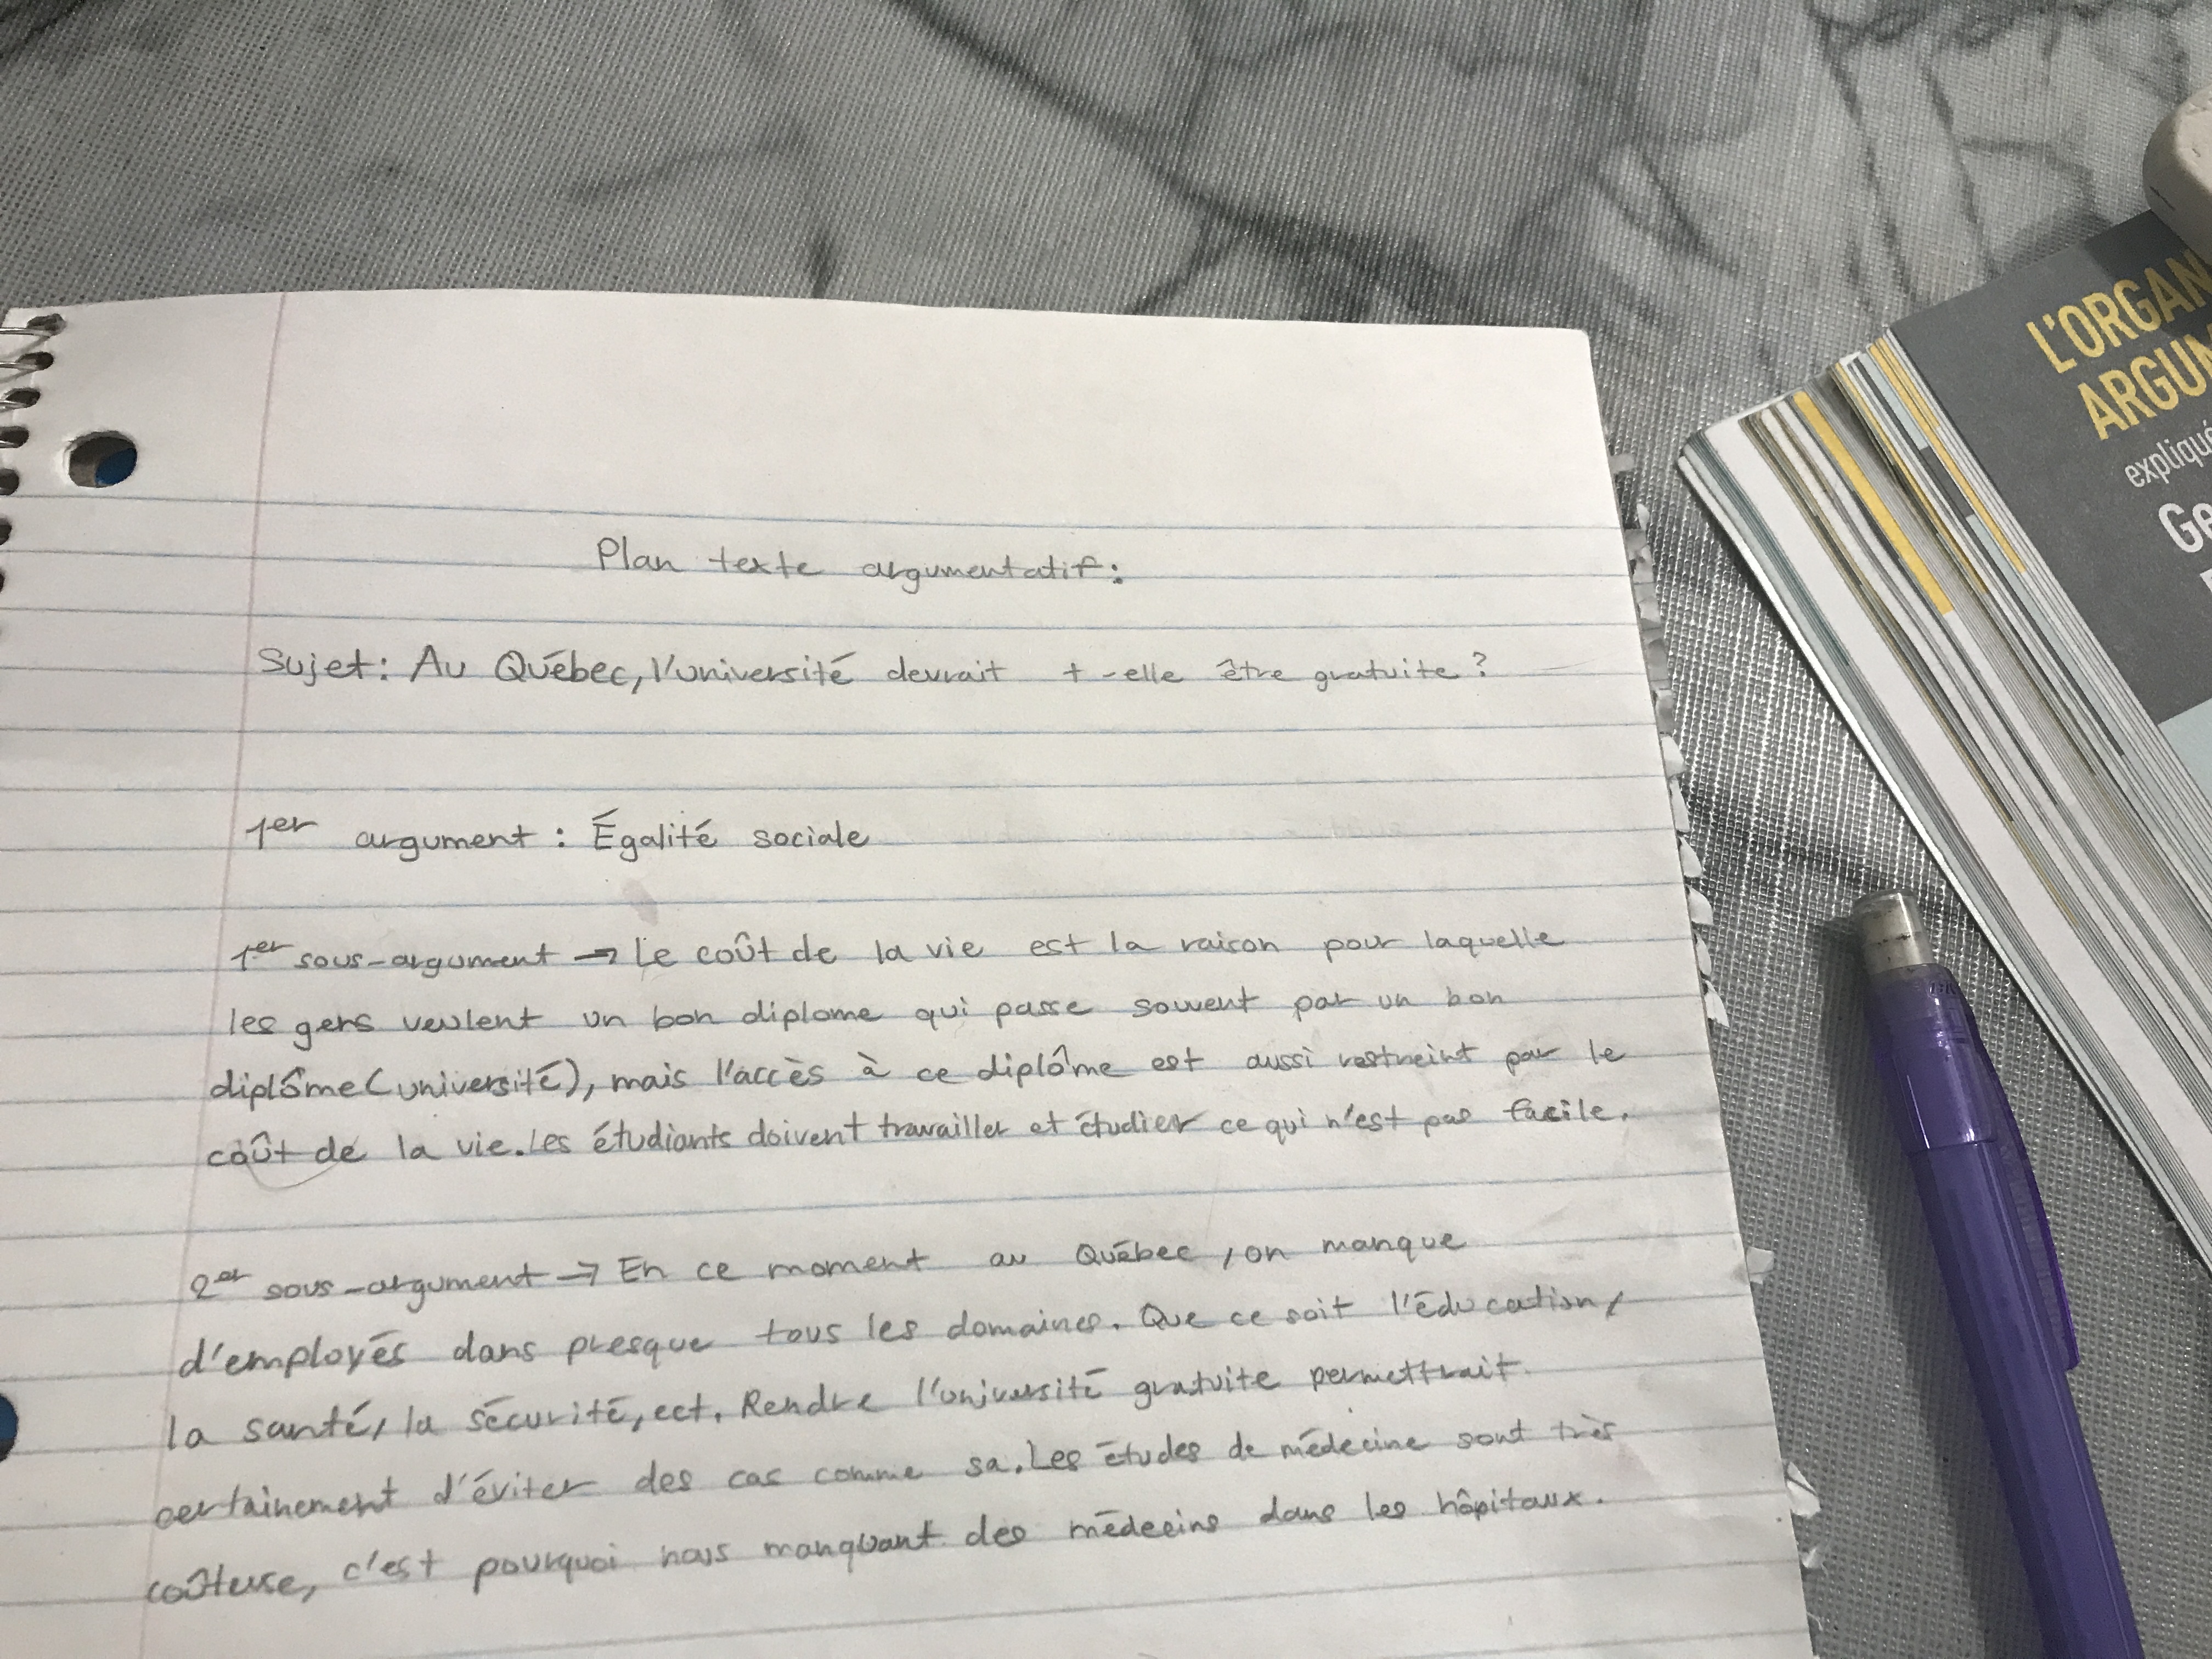 Plan texte argumentatif:
Sujet: Au Québec, l'université devrait t-elle être gratuite?
1er argument : Égalité sociale
1er sous-argument → Le coût de la vie est la raison pour laquelle
les gens veulent un bon diplome qui passe souvent par un bon
diplôme (université), mais l'accès à ce diplôme est aussi restreint par le
coût de la vie. Les étudiants doivent travailler et étudier ce qui n'est pas facile.
2er sous-argument → En ce moment au Québec, on manque
d'employés dans presque tous les domaines. Que ce soit l'éducation,
la santé, la sécurité, ect. Rendre l'université gratuite permettrait
certainement d'éviter des cas comme sa. Les études de médecine sont très
coûteuse, c'est pourquoi nous manquant des médecins dans les hôpitaux.
L'ORGAN
ARGUM
expliqué
Ge